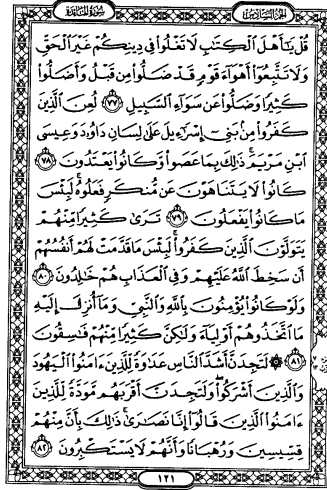 سُورَةُ المَائِدَةِ الجزء السادس
قُلْ يَٰٓأَهْلَ ٱلْكِتَٰبِ لَا تَغْلُوا۟ فِى دِينِكُمْ غَيْرَ ٱلْحَقِّ
وَلَا تَتَّبِعُوٓا۟ أَهْوَآءَ قَوْمٍ قَدْ ضَلُّوا۟ مِن قَبْلُ وَأَضَلُّوا۟
كَثِيرًا وَضَلُّوا۟ عَن سَوَآءِ ٱلسَّبِيلِ ٧٧ لُعِنَ ٱلَّذِينَ
كَفَرُوا۟ مِنۢ بَنِىٓ إِسْرَٰٓءِيلَ عَلَىٰ لِسَانِ دَاوُۥدَ وَعِيسَى
ٱبْنِ مَرْيَمَ ۚ ذَٰلِكَ بِمَا عَصَوا۟ وَّكَانُوا۟ يَعْتَدُونَ ٧٨
كَانُوا۟ لَا يَتَنَاهَوْنَ عَن مُّنكَرٍ فَعَلُوهُ ۚ لَبِئْسَ
مَا كَانُوا۟ يَفْعَلُونَ ٧٩ تَرَىٰ كَثِيرًا مِّنْهُمْ
يَتَوَلَّوْنَ ٱلَّذِينَ كَفَرُوا۟ ۚ لَبِئْسَ مَا قَدَّمَتْ لَهُمْ أَنفُسُهُمْ
أَن سَخِطَ ٱللَّهُ عَلَيْهِمْ وَفِى ٱلْعَذَابِ هُمْ خَٰلِدُونَ ٨٠
وَلَوْ كَانُوا۟ يُؤْمِنُونَ بِٱللَّهِ وَٱلنَّبِىِّ وَمَآ أُنزِلَ إِلَيْهِ
مَا ٱتَّخَذُوهُمْ أَوْلِيَآءَ وَلَٰكِنَّ كَثِيرًا مِّنْهُمْ فَٰسِقُونَ
٨١ ۞ لَتَجِدَنَّ أَشَدَّ ٱلنَّاسِ عَدَٰوَةً لِّلَّذِينَ ءَامَنُوا۟ ٱلْيَهُودَ
وَٱلَّذِينَ أَشْرَكُوا۟ ۖ وَلَتَجِدَنَّ أَقْرَبَهُم مَّوَدَّةً لِّلَّذِينَ
ءَامَنُوا۟ ٱلَّذِينَ قَالُوٓا۟ إِنَّا نَصَٰرَىٰ ۚ ذَٰلِكَ بِأَنَّ مِنْهُمْ
قِسِّيسِينَ وَرُهْبَانًا وَأَنَّهُمْ لَا يَسْتَكْبِرُونَ ٨٢
١٢١